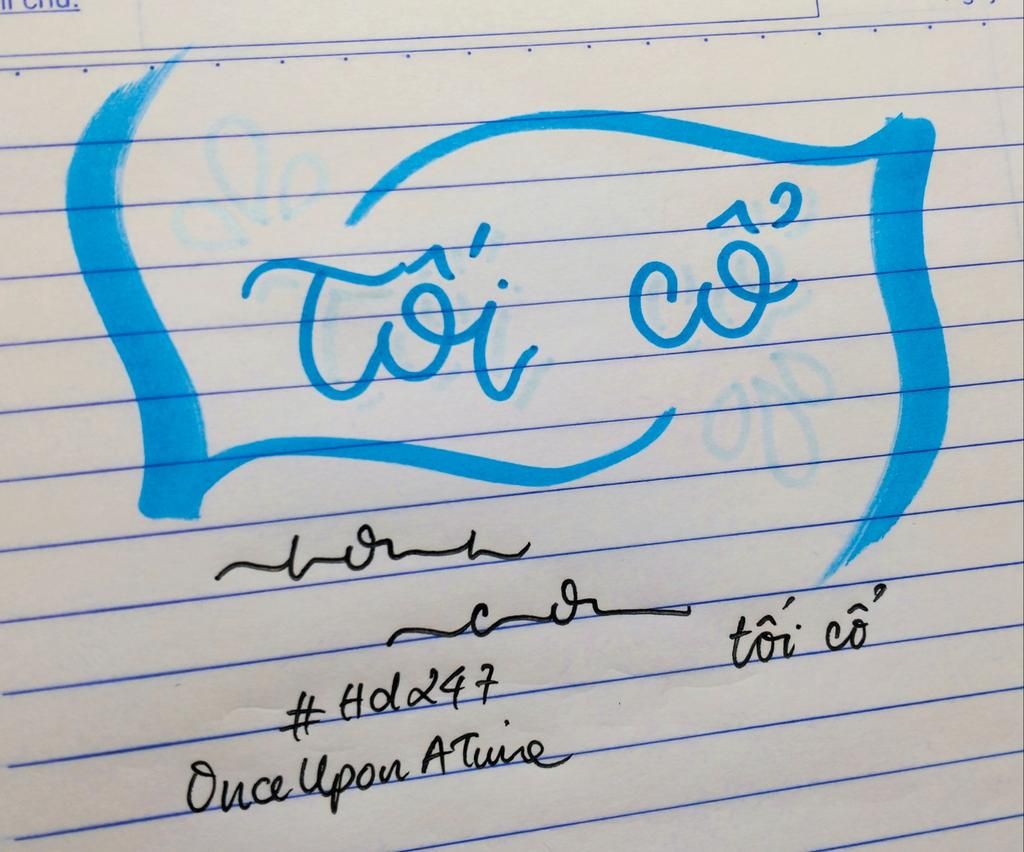 Tối cổ
tối cổ
#Hd247
Once Upon A Time